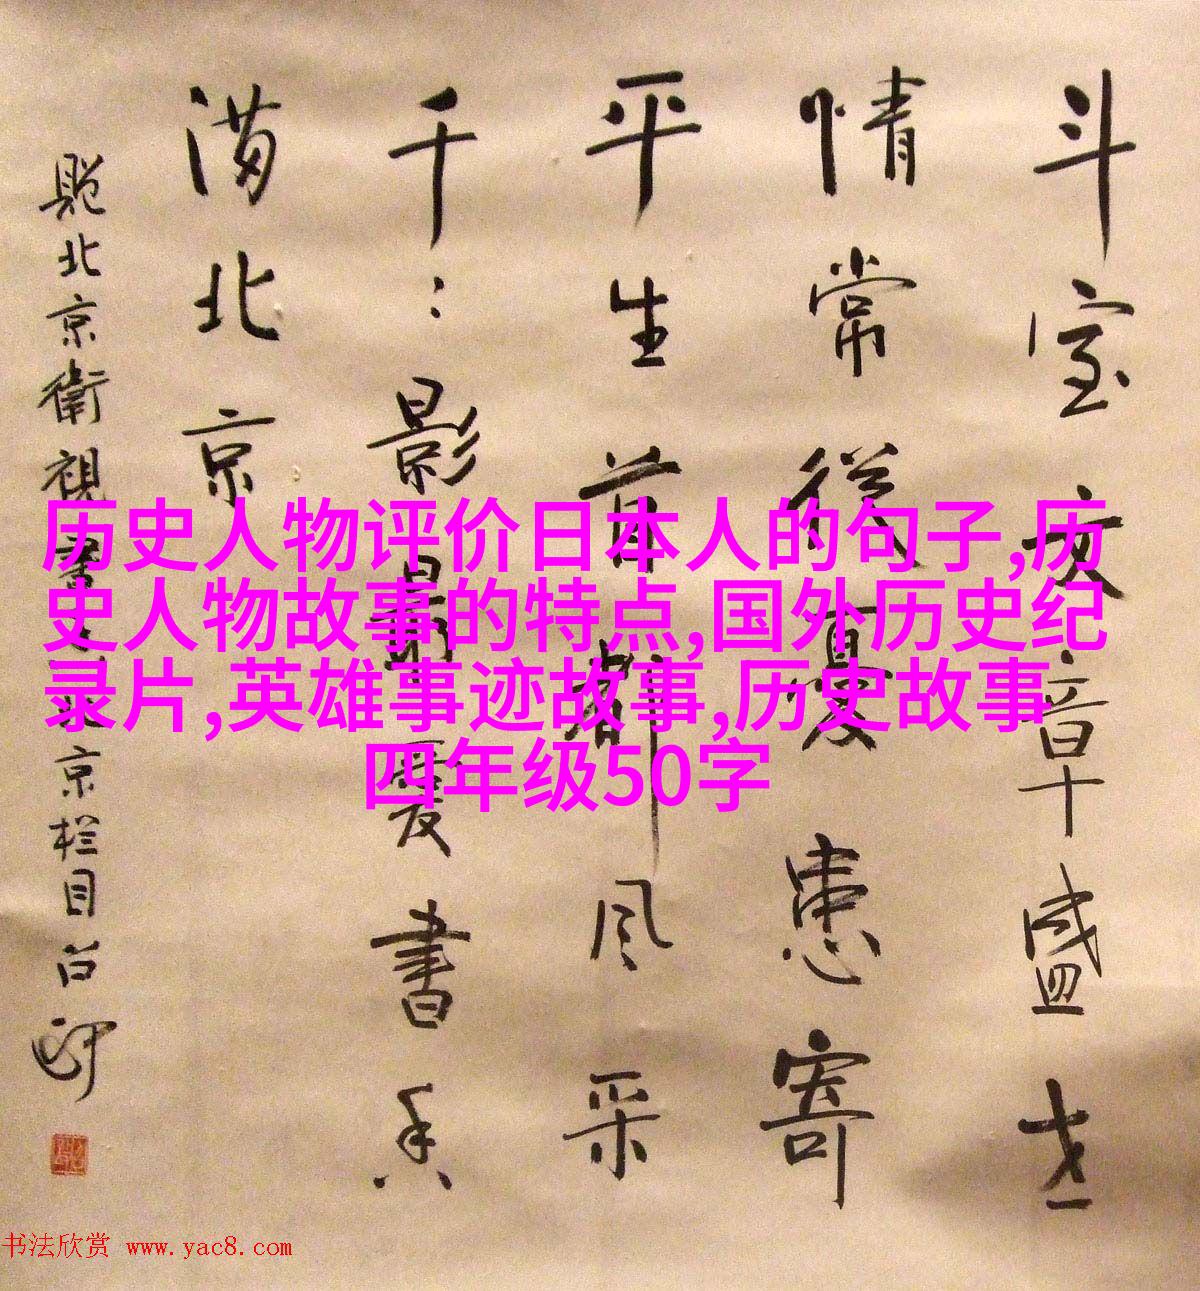 斗室文章十盛世
情常從夏患寄
平生首都风采
千：影最爱書香
满北京
题北京衛視書
京栏目
历史人物评价日本人的句子,历
史人物故事的特点,国外历史纪
录片,英雄事迹故事,历史故事
四年级50字
书法欣赏 www.yac8.com